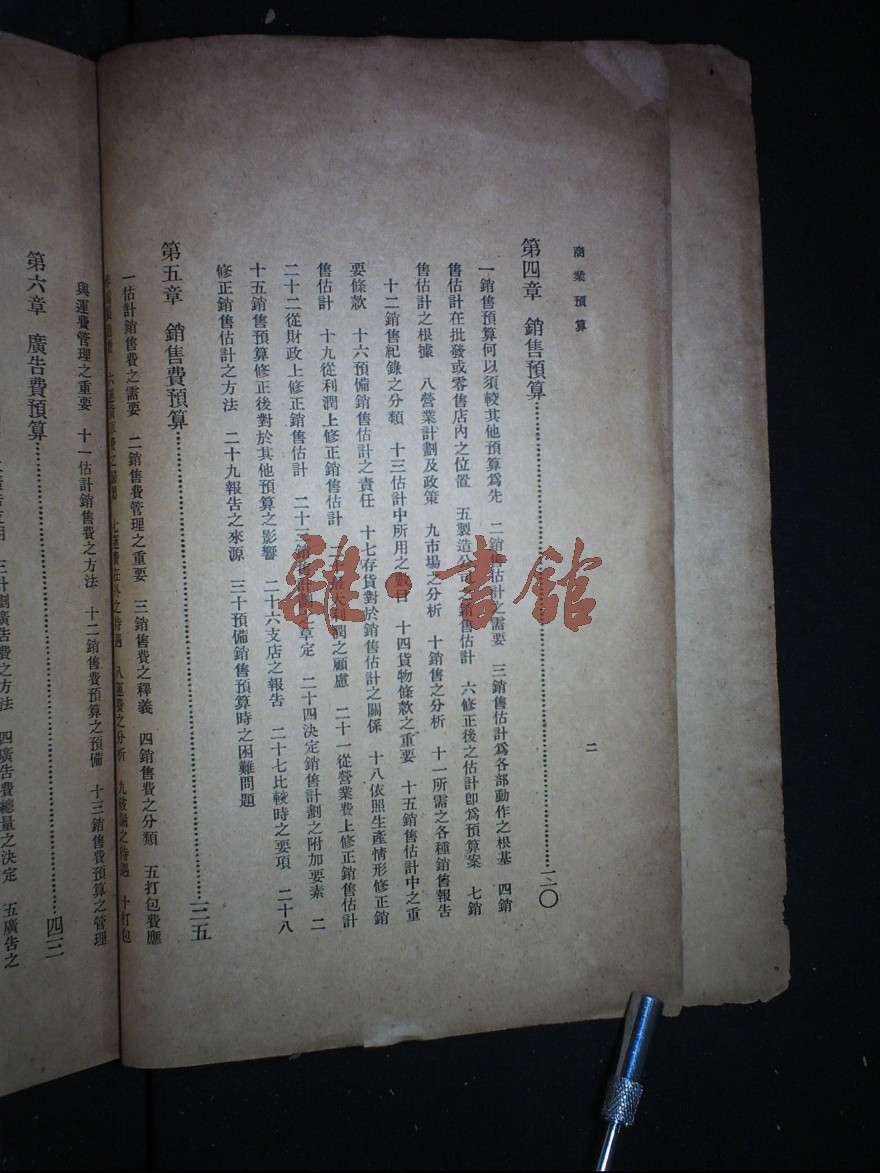 商業預算
二
第四章 銷售預算…………二〇
一銷售預算何以須較其他預算爲先 二銷售估計之需要 三銷售估計爲各部動作之根基 四銷
售估計在批發或零售店內之位置 五製造公司之銷售估計 六修正後之估計卽爲預算案 七銷
售估計之根據 八營業計劃及政策 九市場之分析 十銷售之分析 十一所需之各種銷售報告
十二銷售紀錄之分類 十三估計中所用之數目 十四貨物條款之重要 十五銷售估計中之重
要條款 十六預備銷售估計之責任 十七存貨對於銷售估計之關係 十八依照生產情形修正銷
售估計 十九從利潤上修正銷售估計 二十最大利潤之顧慮 二十一從營業費上修正銷售估計
二十二從財政上修正銷售估計 二十三銷售計劃之草定 二十四決定銷售計劃之附加要素 二
十五銷售預算修正後對於其他預算之影響 二十六支店之報告 二十七比較時之要項 二十八
修正銷售估計之方法 二十九報告之來源 三十預備銷售預算時之困難問題
第五章 銷售費預算…………三五
一估計銷售費之需要 二銷售費管理之重要 三銷售費之釋義 四銷售費之分類 五打包費應
七運費在外之待遇 八運費之分析 十打包
與運費管理之重要 十一估計銷售費之方法 十二銷售費預算之預備 十三銷售費預算之管理
第六章 廣告費預算…………四三
三計劃廣告費之方法 四廣告費總量之決定 五廣告之
雜·書館